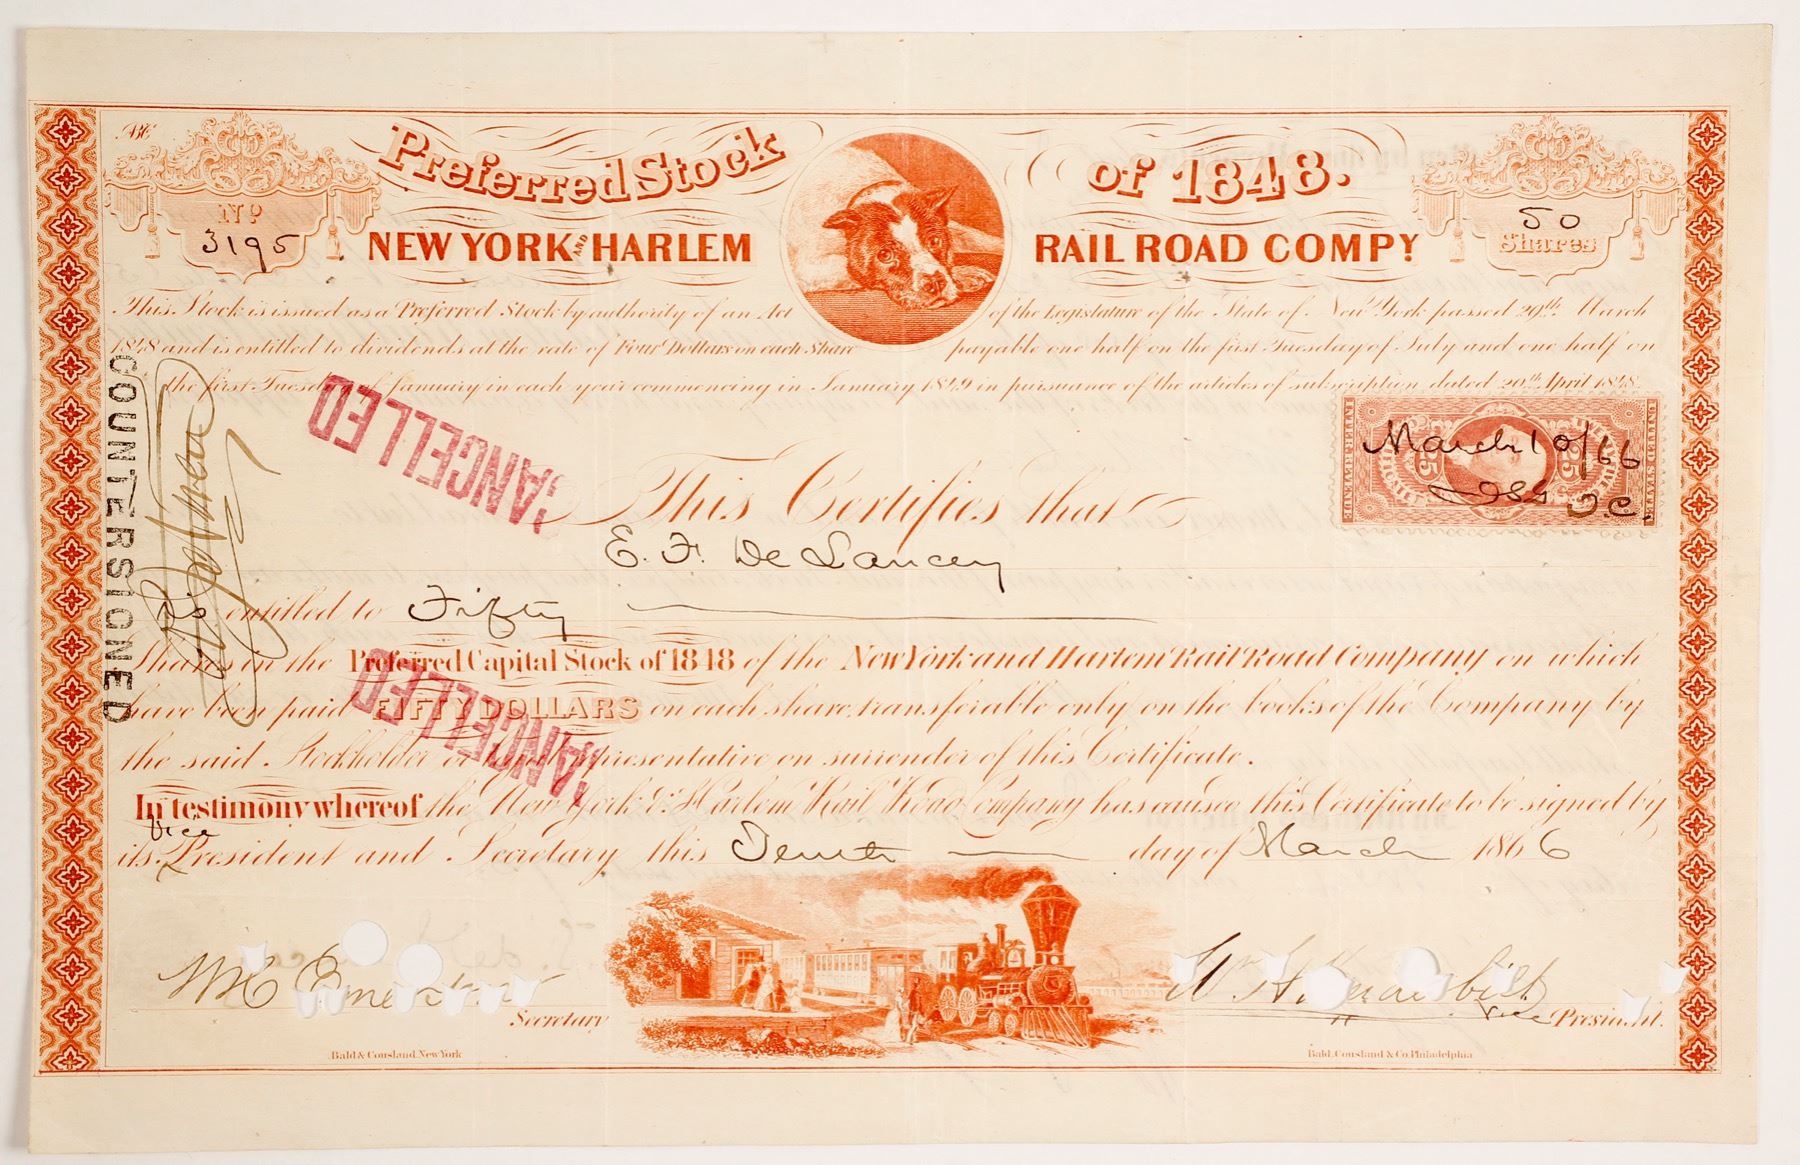 Preferred Stock of 1848.
Nº 3195
50 Shares
NEW YORK AND HARLEM RAIL ROAD COMPY
This Stock is issued as a Preferred Stock by authority of an Act of the Legislature of the State of New York passed 29th March
1848 and is entitled to dividends at the rate of Four Dollars on each Share payable one half on the first Tuesday of July and one half on
the first Tuesday of January in each year commencing in January 1849 in pursuance of the articles of subscription dated 20th April 1848.
COUNTERSIGNED
CANCELLED
UNITED STATES
INTER. REVENUE
25 25
March 10/66
T.C.
This Certifies that
E. F. De Lancey
is entitled to Fifty
Shares in the Preferred Capital Stock of 1848 of the New York and Harlem Rail Road Company on which
have been paid FIFTY DOLLARS on each share, transferable only on the books of the Company by
the said Stockholder or representative on surrender of this Certificate.
CANCELLED
In testimony whereof the New York & Harlem Rail Road Company has caused this Certificate to be signed by
its Vice President and Secretary this Tenth day of March 1866
Wm H Vanderbilt
Secretary
Vice President.
Bald & Cousland, New York
Bald, Cousland & Co. Philadelphia